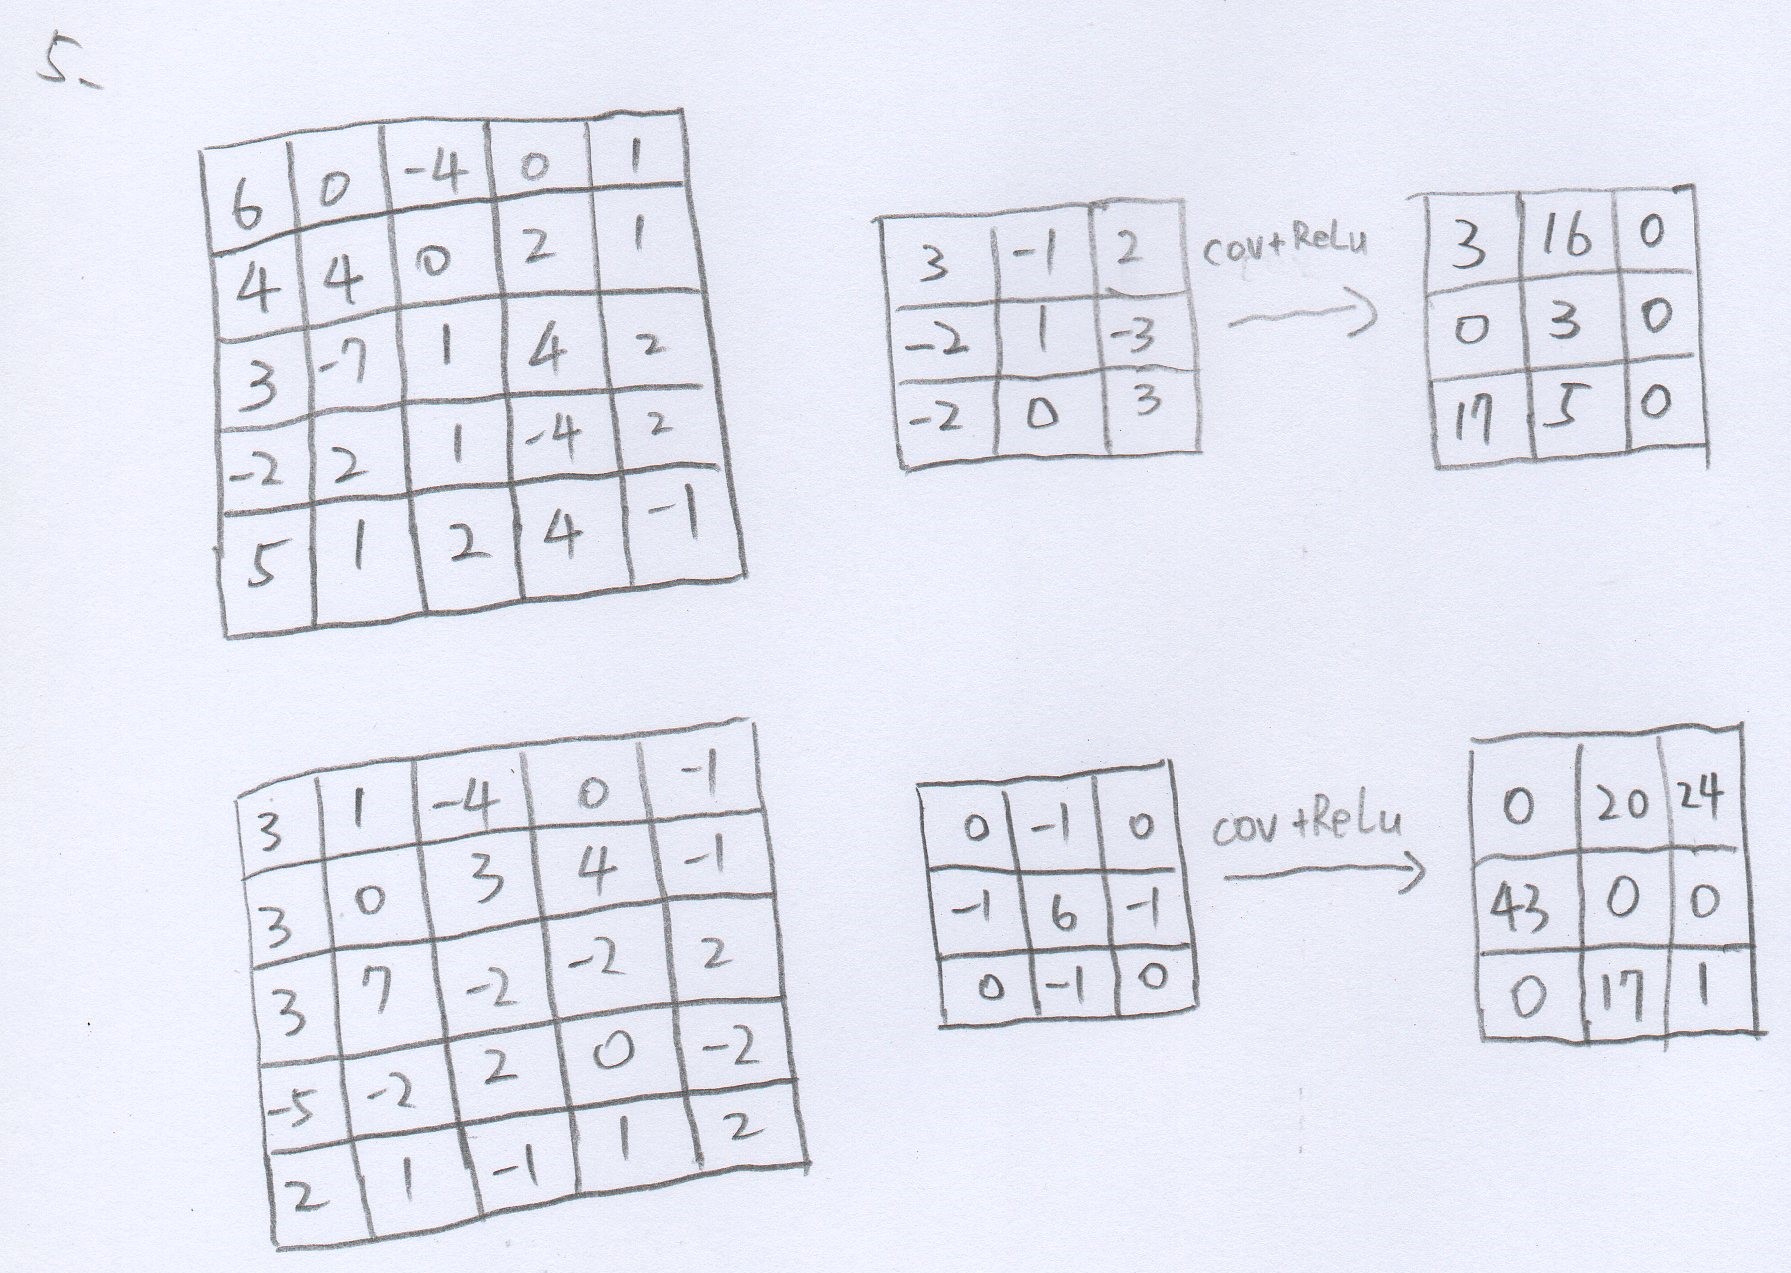 5.
6 0 -4 0 1
4 4 0 2 1
3 -7 1 4 2
-2 2 1 -4 2
5 1 2 4 -1
3 -1 2
-2 1 -3
-2 0 3
cov+ReLu
3 16 0
0 3 0
17 5 0
3 1 -4 0 -1
3 0 3 4 -1
3 7 -2 -2 2
-5 -2 2 0 -2
2 1 -1 1 2
0 -1 0
-1 6 -1
0 -1 0
cov+ReLu
0 20 24
43 0 0
0 17 1